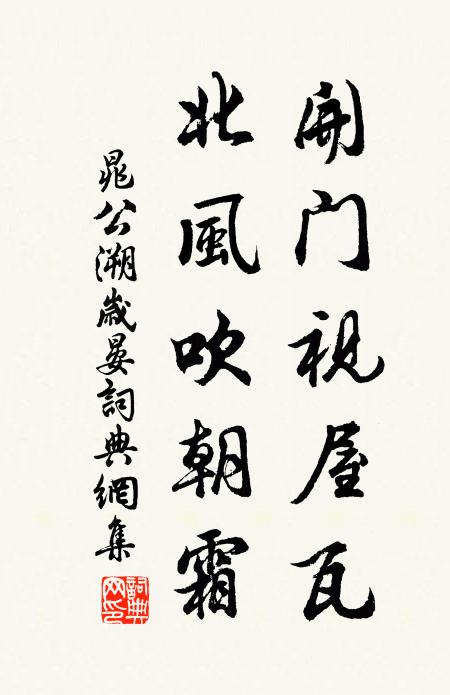 開门視屋瓦
北風吹朝霜
晁公溯歲晏詞典網集
詞典网印